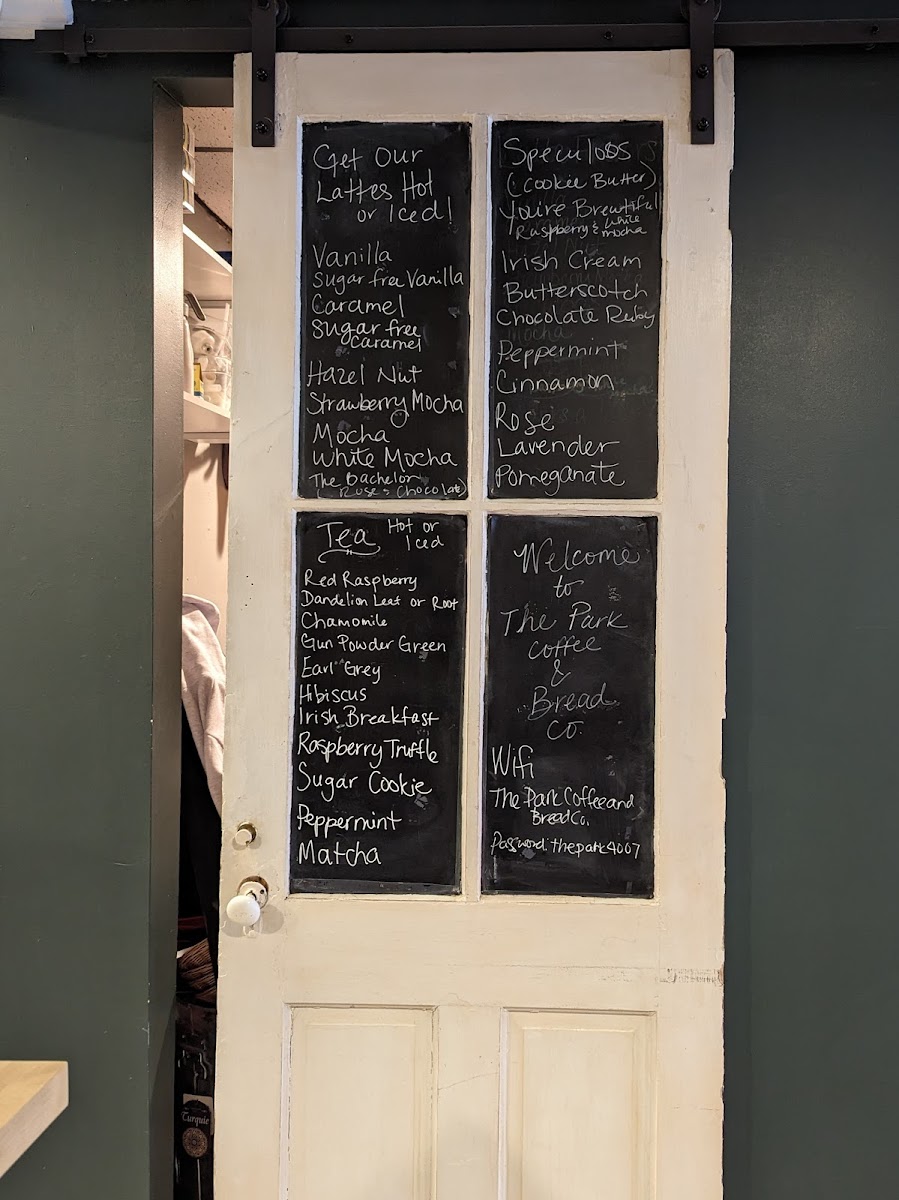 Get Our
Lattes Hot
or Iced!
Vanilla
Sugar free Vanilla
Caramel
Sugar free
Caramel
Hazel Nut
Strawberry Mocha
Mocha
White Mocha
The Bachelor
(Rose & Chocolate)
Speculoos
(Cookie Butter)
You're Brewtiful
Raspberry & white
mocha
Irish Cream
Butterscotch
Chocolate Ruby
Peppermint
Cinnamon
Rose
Lavender
Pomeganate
Tea Hot or
Iced
Red Raspberry
Dandelion Leaf or Root
Chamomile
Gun Powder Green
Earl Grey
Hibiscus
Irish Breakfast
Raspberry Truffle
Sugar Cookie
Peppermint
Matcha
Welcome
to
The Park
Coffee
&
Bread
Co.
Wifi
The Park Coffee and
Bread Co.
Password: thepark4007
Turquie